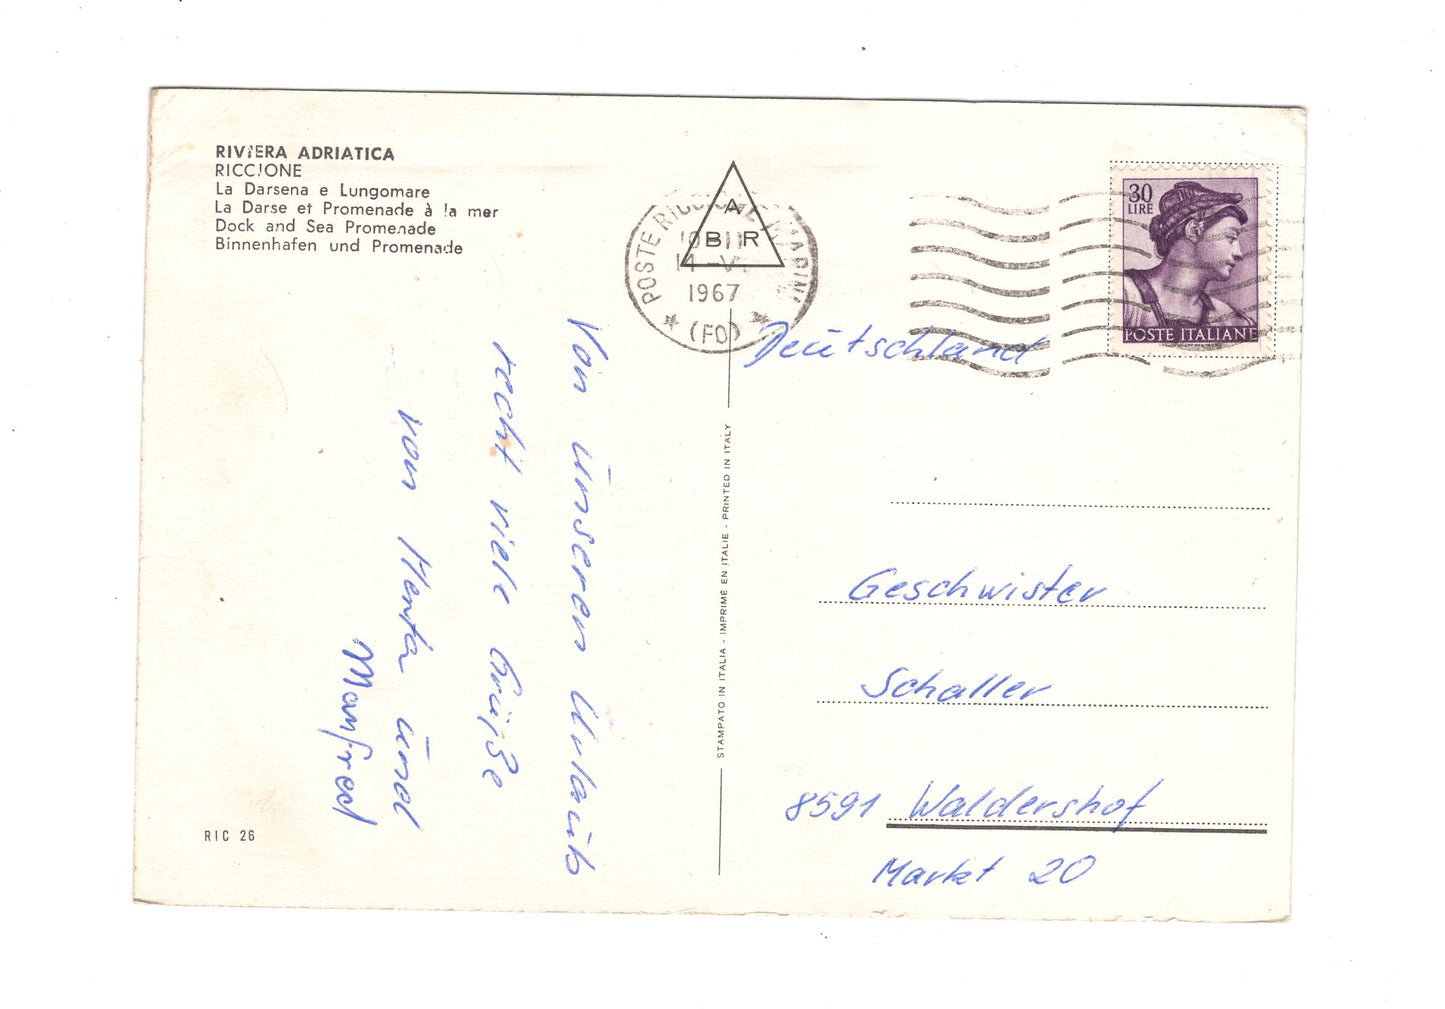 RIVIERA ADRIATICA
RICCIONE
La Darsena e Lungomare
La Darse et Promenade à la mer
Dock and Sea Promenade
Binnenhafen und Promenade
Von unseren Urlaub
recht viele Grüße
von Herta und
Manfred
RIC 26
STAMPATO IN ITALIA - IMPRIMÉ EN ITALIE - PRINTED IN ITALY
A
B R
POSTE RICCIONE MARINA
1967
(FO)
30
LIRE
POSTE ITALIANE
Deutschland
Geschwister
Schaller
8591 Waldershof
Markt 20